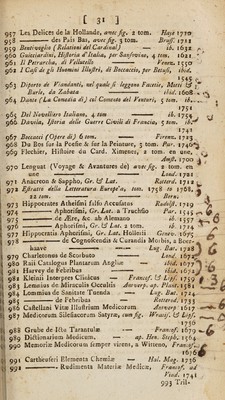 [ 31 ]
957 Les Delices de la Hollande, avec fig. 2 tom. Haye 1710
958 — des Païs Bas, avec fig. 3 tom. Bruss. 1711
959 Bentivoglio (Relationi del Cardinal) — 1632
960 Guicciardini, Historia d'Italia, per Sansovino, 4 tom. 1621
961 Il Petrarcha, di Vellutello — Venez. 1550
962 I Casi de gli Huomini Illustri, di Boccaccio, per Betusi, ibid. 1545
963 Diporto de Viandanti, nel quale si leggono Facetie, Motti &
Burle, da Zabata ibid.
964 Dante (La Comedia di) col Comento del Venturi, 5 tom. ib.
1751
965 Del Novelliero Italiano, 4 tom — ib. 1754
966 Davila, Istoria delle Guerre Civili di Francia, 5 tom. ib.
1741
967 Beccucci (Opere di) 6 tom — Firenz. 1723
968 Du Bos sur la Poesie & sur la Peinture, 3 tom. Par. 1740
969 Flechier, Histoire du Card. Ximenes, 2 tom. en une,
Amst. 1700
970 Lenguat (Voyage & Avantures de) avec fig. 2 tom. en
une — Lond. 1721
971 Anacreon & Sappho, Gr. & Lat. Rotterd. 1712
972 Estratti della Litteratura Europ'a, tom. 1758 to 1762,
22 tom. Bern.
973 Hippocrates Atheismi falsi Accusatus Rudolst. 1719
974 — Aphorismi, Gr. Lat. a Truchsio Par. 1515
975 — de Aere, &c. ab Alemano ib. 1557
976 — Aphorismi, Gr. & Lat. 2 tom. ib. 1724
977 Hippocratis Aphorismi, Gr. Lat. Hollerii Genev. 1675
978 — de Cognoscendis & Curandis Morbis, a Boer-
haave — Lug. Bat. 1728
979 Charletonus de Scorbuto Lond. 1672
980 Raii Catalogus Plantarum Angliæ ibid. 1670
981 Harvey de Febribus ibid. 1672
982 Kleinii Interpres Clinicus Francof. & Lips. 1753
983 Lemnius de Miraculis Occultis Antverp. ap. Plant. 1581
984 Lommius de Sanitate Tuenda Lug. Bat. 1761
985 — de Febribus Roterd. 1733
986 Castellani Vitæ Illustrium Medicorum Antverp. 1617
987 Medicorum Silesiacorum Satyræ, cum fig. Wratisl. & Lips.
988 Grube de Ictu Tarantulæ Francof. 1679
989 Dictionarium Medicum. — ap. Hen. Steph. 1564
990 Memoriæ Medicorum semper virens, a Witteno, Francof.
1676
991 Cartheuseri Elementa Chemiæ Hal. Mag. 1736
992 — Rudimenta Materiæ Medicæ, Francof. ad
Viad. 1741
993 Trill-